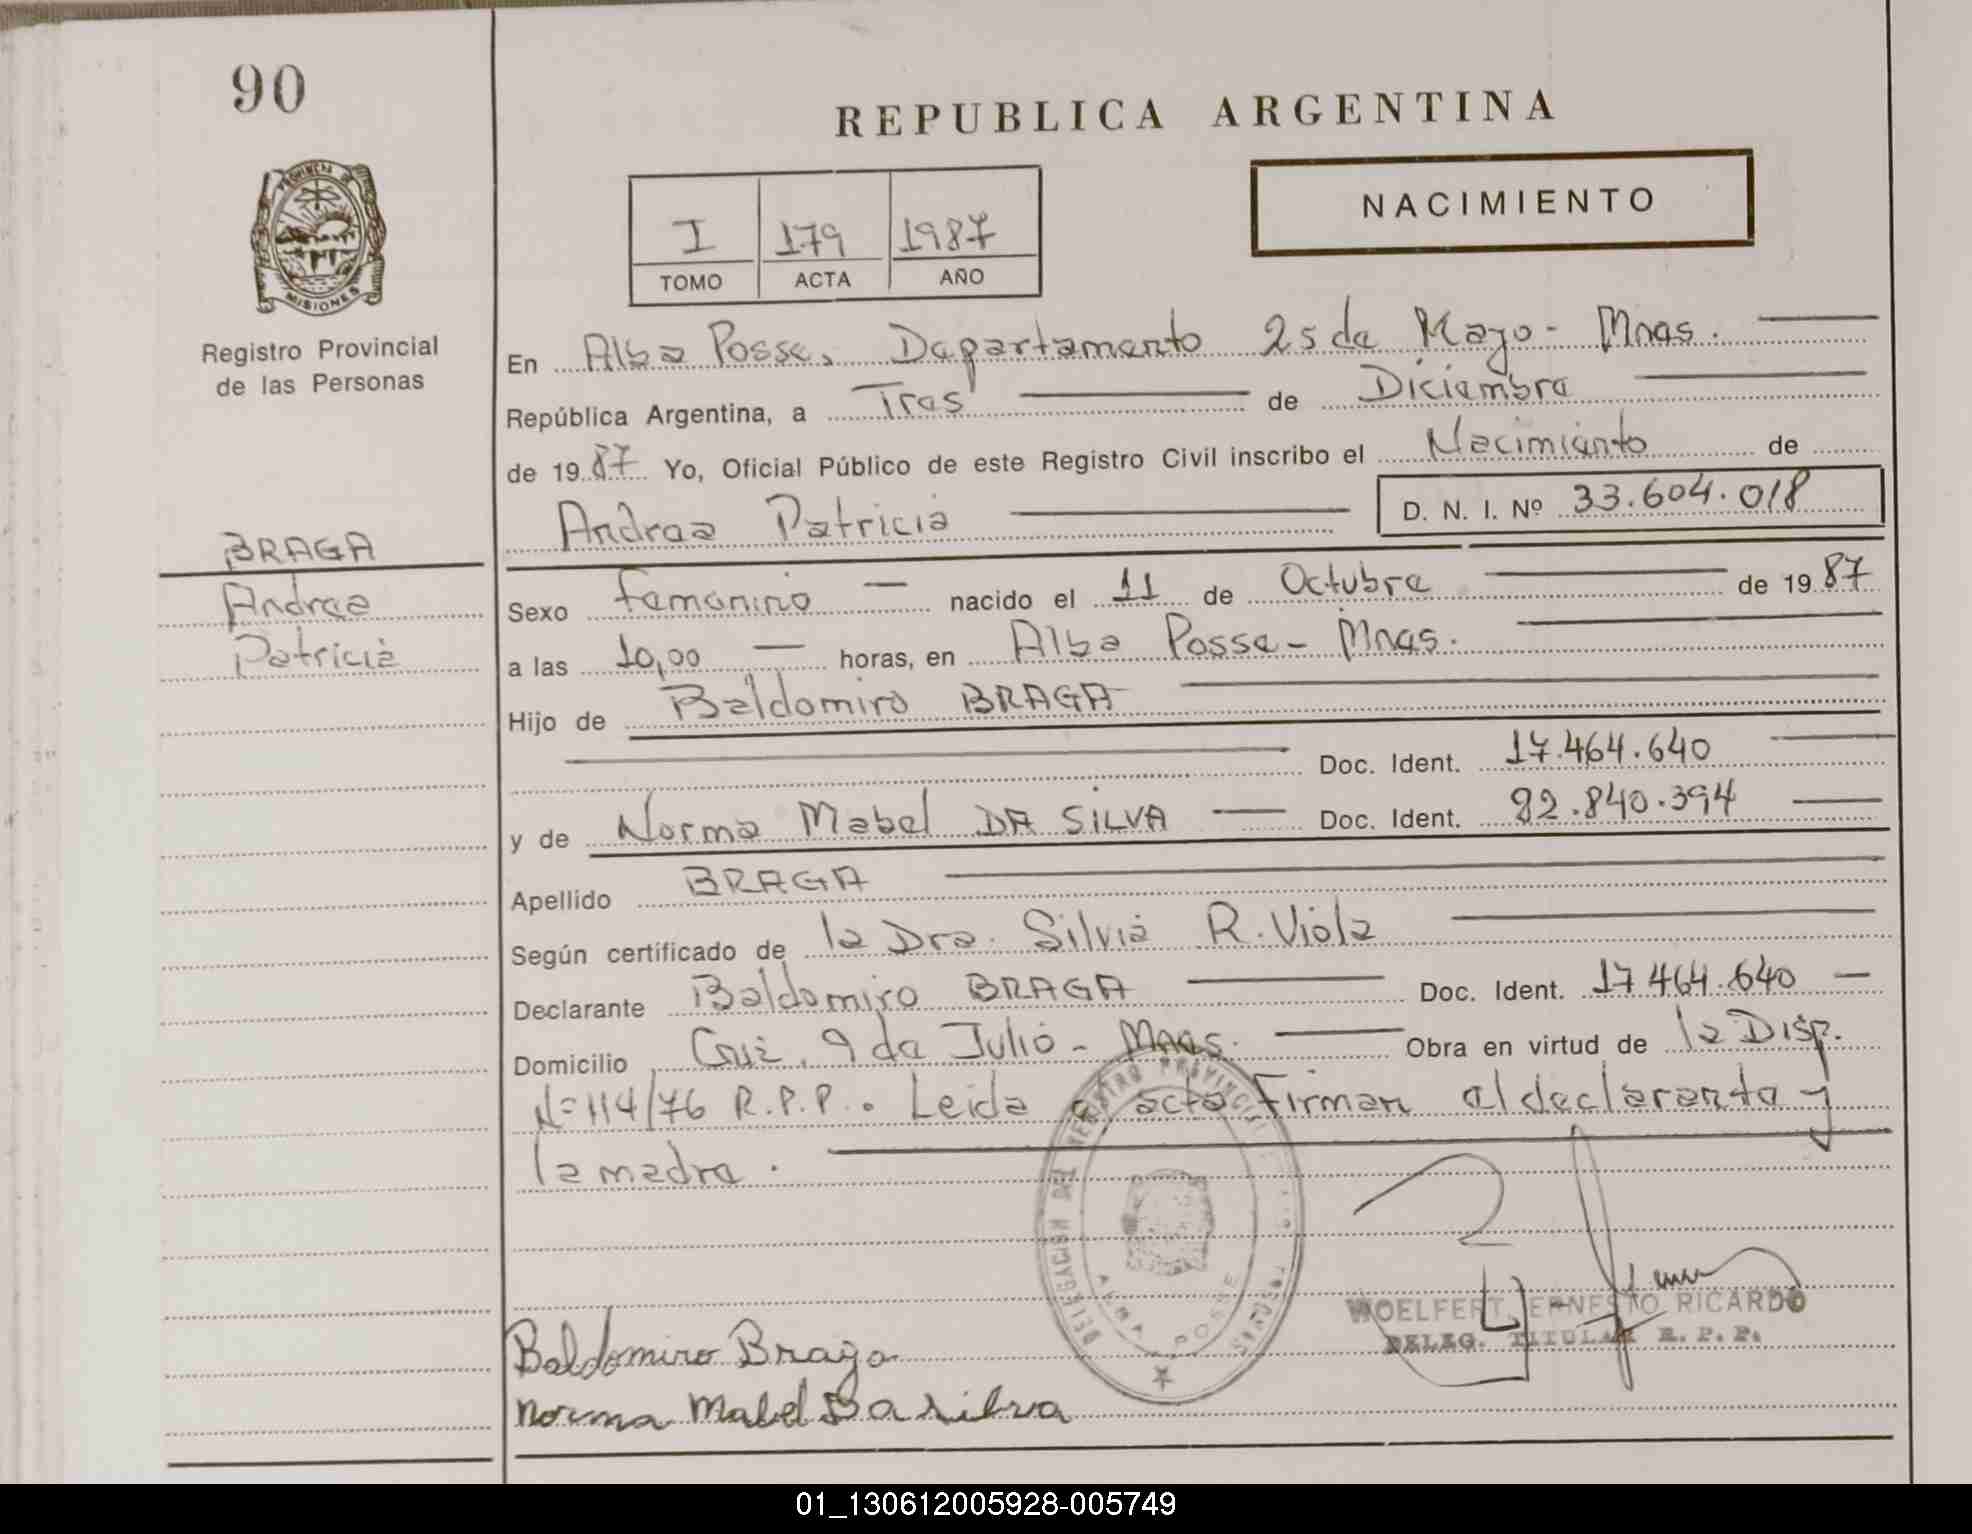 90
REPUBLICA ARGENTINA
NACIMIENTO
I 179 1987
TOMO ACTA AÑO
PROVINCIA DE MISIONES
Registro Provincial
de las Personas
BRAGA
Andrea
Patricia
En Alba Posse, Departamento 25 de Mayo - Mnes.
República Argentina, a Tres de Diciembre
de 1987 Yo, Oficial Público de este Registro Civil inscribo el Nacimiento de
Andrea Patricia D. N. I. Nº 33.604.018
Sexo femenino nacido el 11 de Octubre de 1987
a las 10,00 horas, en Alba Posse - Mnes.
Hijo de Baldomiro BRAGA
Doc. Ident. 17.464.640
y de Norma Mabel DA SILVA Doc. Ident. 92.840.394
Apellido BRAGA
Según certificado de la Dra. Silvia R. Viola
Declarante Baldomiro BRAGA Doc. Ident. 17.464.640
Domicilio Cruz. 9 de Julio - Mnes. Obra en virtud de la Disp.
Nº 114/76 R.P.P. Leida el acta Firman el declarante y
la madre.
DELEGACION DEL REGISTRO PROVINCIAL
ALBA POSSE
MISIONES
WOELFERT, ERNESTO RICARDO
DELEG. TITULAR R. P. P.
Baldomiro Braga
Norma Mabel Da silva
01_130612005928-005749